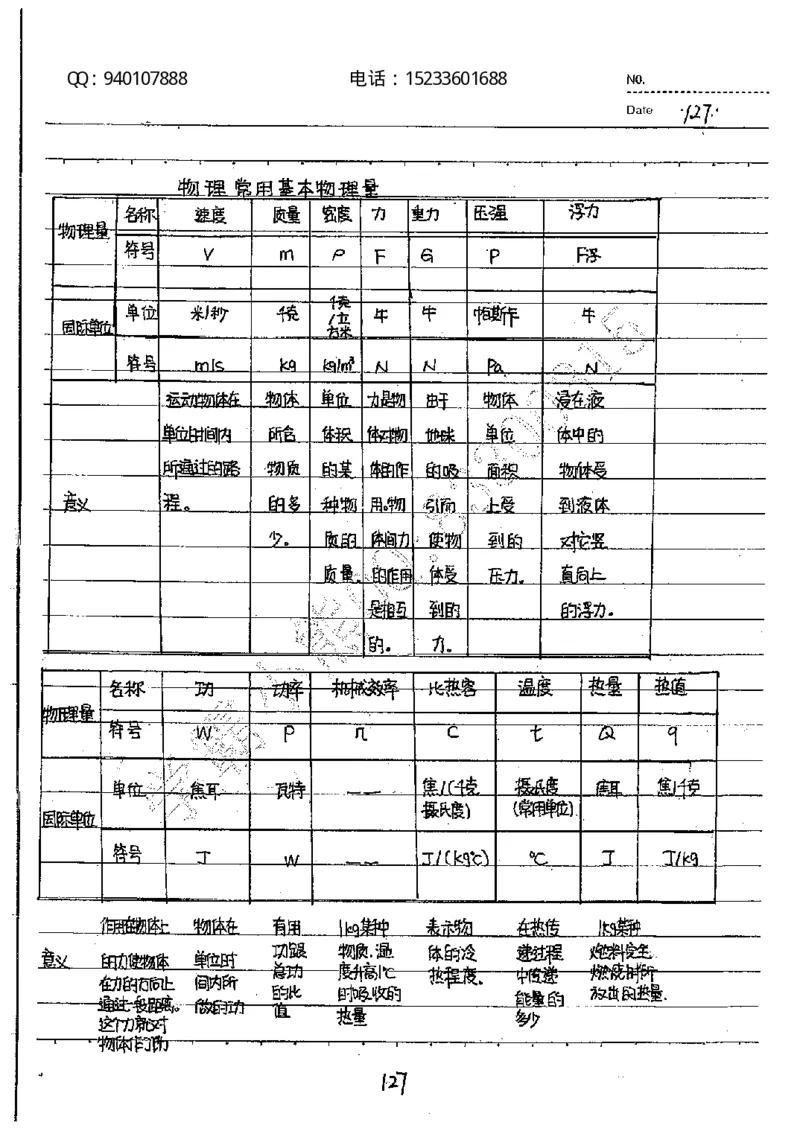 QQ：940107888 电话：15233601688 NO.
Date 127.
物理 常用基本物理量
物理量 名称 速度 质量 密度 力 重力 压强 浮力
符号 V m ρ F G P F浮
国际单位 单位 米/秒 千克 千克/立方米 牛 牛 帕斯卡 牛
符号 m/s kg kg/m³ N N Pa N
意义
运动物体在
单位时间内
所通过的路
程。
物体
所含
物质
的多
少。
单位
体积
的某
种物
质的
质量。
力是物
体对物
体的作
用。物
体间力
的作用
是相互
的。
由于
地球
的吸
引而
使物
体受
到的
力。
物体
单位
面积
上受
到的
压力。
浸在液
体中的
物体受
到液体
对它竖
直向上
的浮力。
物理量 名称 功 功率 机械效率 比热容 温度 热量 热值
符号 W P η C t Q q
国际单位 单位 焦耳 瓦特 —— 焦/(千克 摄氏度 焦耳 焦/千克
摄氏度) (常用单位)
符号 J W —— J/(kg℃) ℃ J J/kg
意义
作用在物体上
的力使物体
在力的方向上
通过一段距离。
这个力就对
物体作了功
物体在
单位时
间内所
做的功
有用
功跟
总功
的比
值
1kg某种
物质,温
度升高1℃
时吸收的
热量
表示物
体的冷
热程度。
在热传
递过程
中传递
能量的
多少
1kg某种
燃料完全
燃烧时所
放出的热量.
127